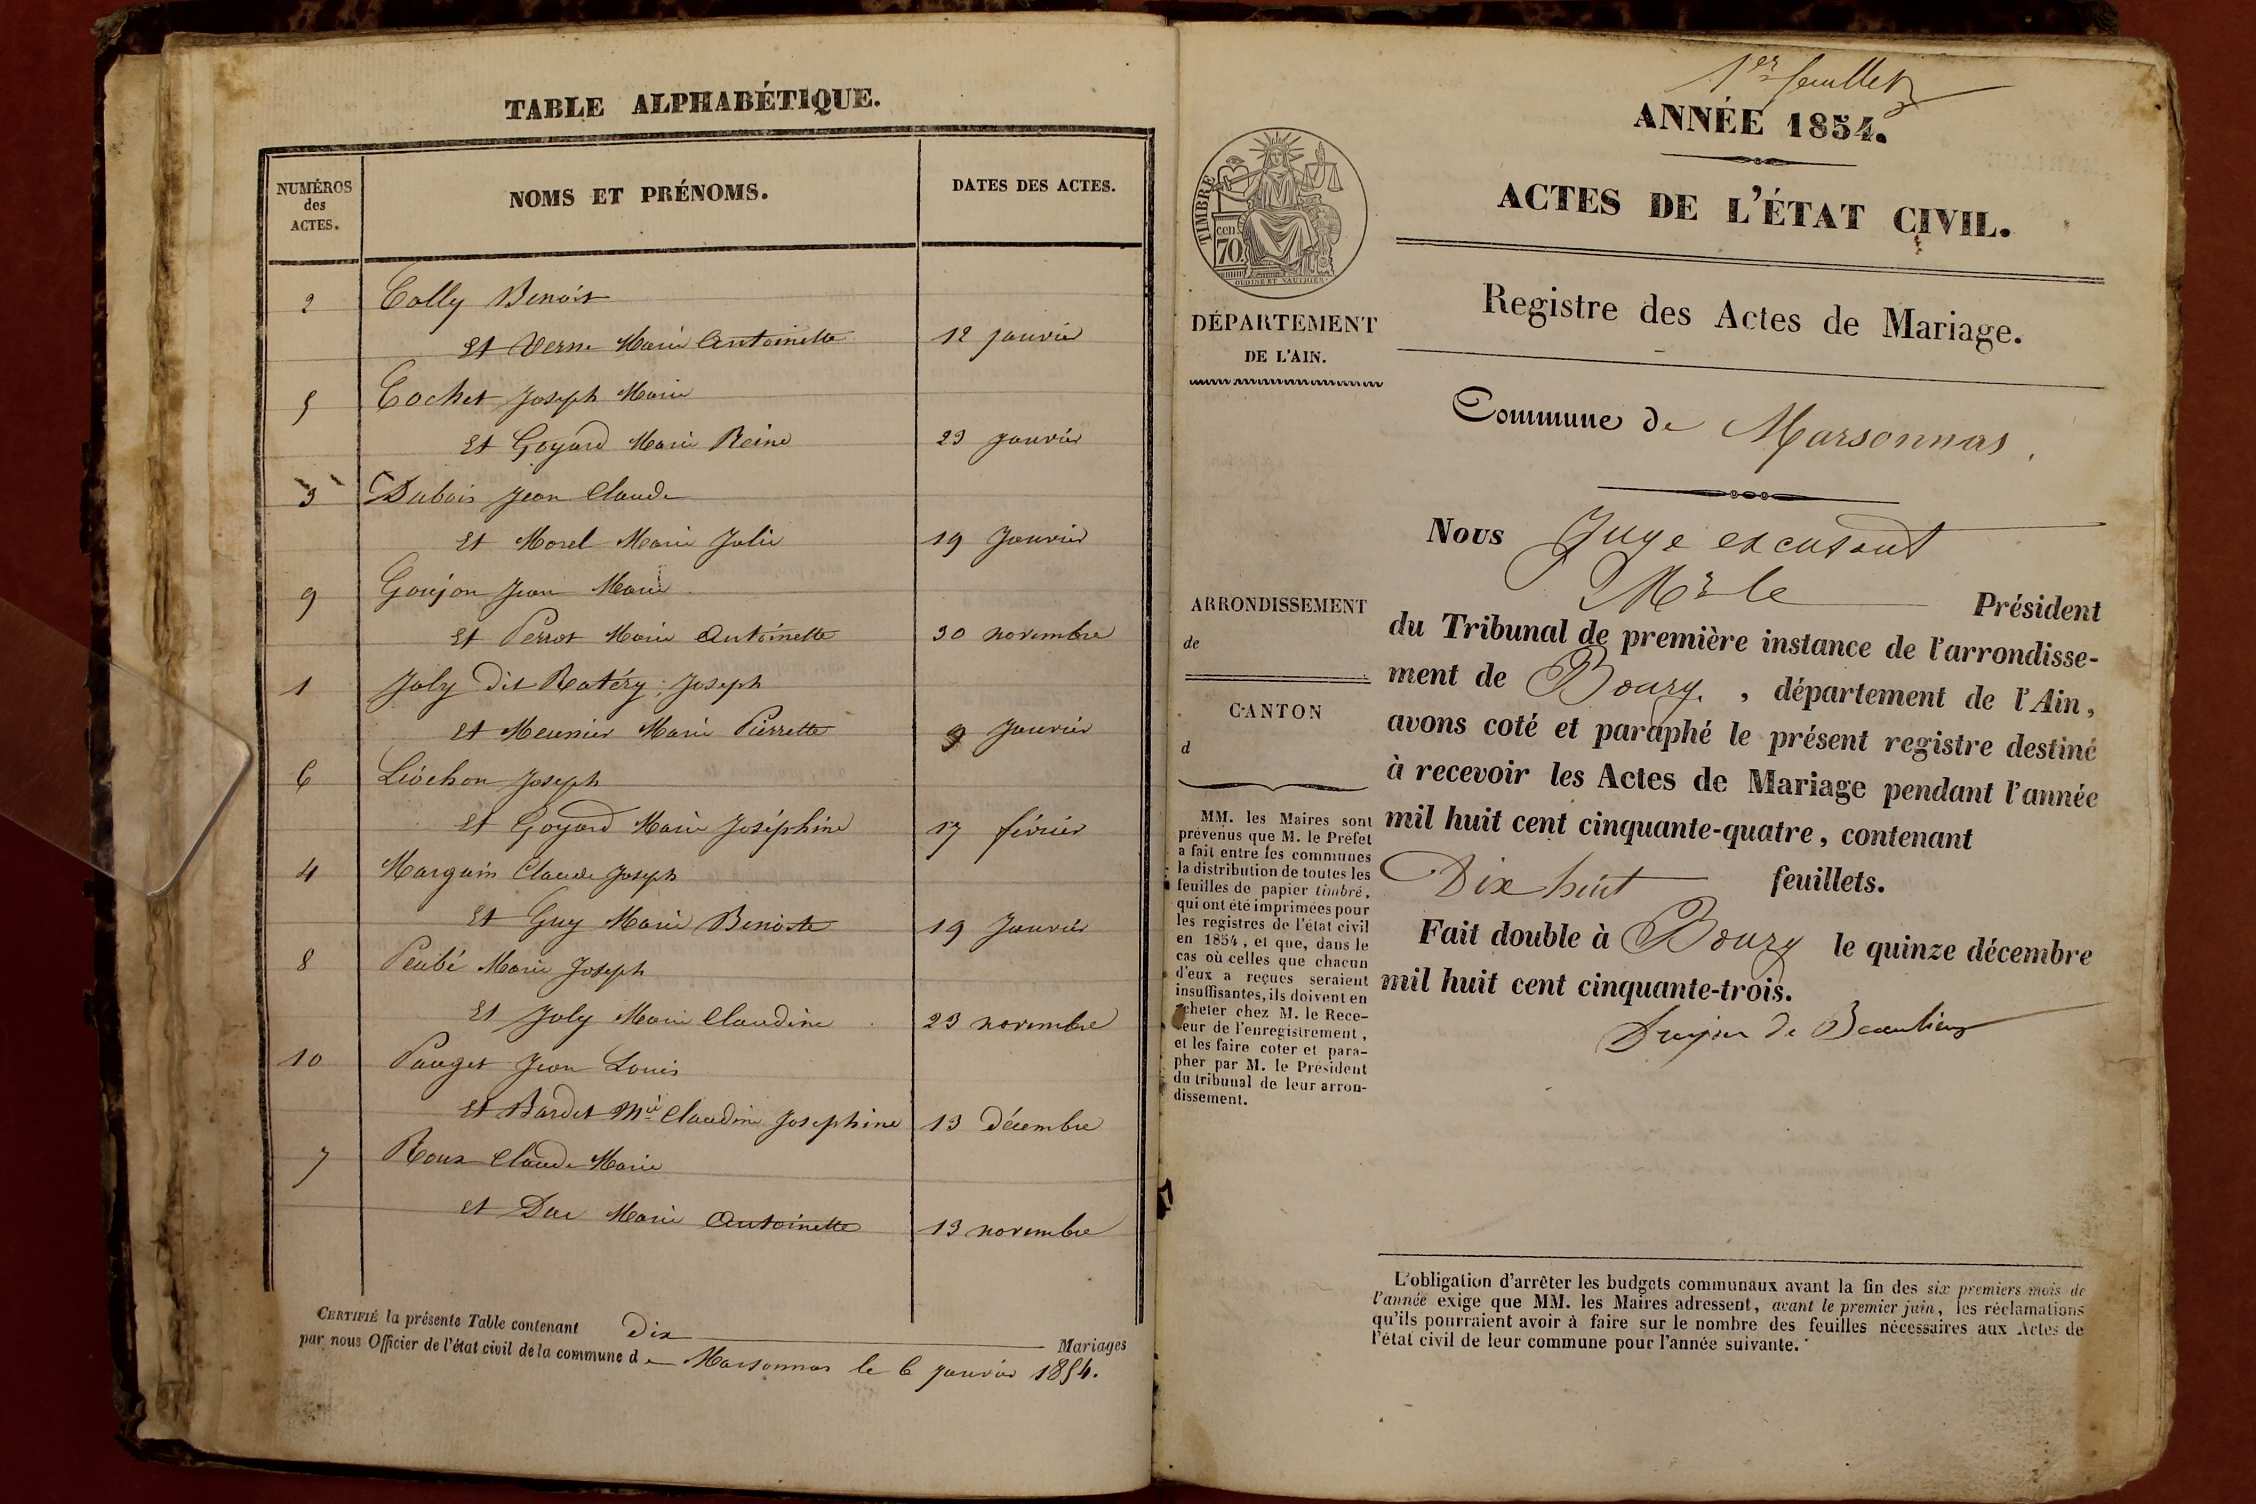 TABLE ALPHABÉTIQUE.
NUMÉROS
des
ACTES.
NOMS ET PRÉNOMS.
DATES DES ACTES.
2 Colly Benoit
et Verne Marie Antoinette 12 janvier
5 Cochet Joseph Marie
et Goyard Marie Reine 23 janvier
3 Dubois Jean Claude
et Morel Marie Julie 19 Janvier
9 Goujon Jean Marie
et Perrot Marie Antoinette 30 novembre
1 Joly dit Ratéry Joseph
et Meunier Marie Pierrette 9 Janvier
6 Liochon Joseph
et Goyard Marie Joséphine 17 février
4 Marguin Claude Joseph
et Guy Marie Benoite 19 Janvier
8 Peubé Marie Joseph
et Joly Marie Claudine 23 novembre
10 Pauget Jean Louis
et Bardet Mie Claudine Josephine 13 décembre
7 Roux Claude Marie
et Duc Marie Antoinette 13 novembre
CERTIFIÉ la présente Table contenant Dix Mariages
par nous Officier de l'état civil de la commune de Marsonnas le 6 janvier 1854.
1er feuillet
ANNÉE 1854.
TIMBRE
cen
70.
ACTES DE L'ÉTAT CIVIL.
Registre des Actes de Mariage.
DÉPARTEMENT
DE L'AIN.
Commune de Marsonnas.
Nous Juge
Président
du Tribunal de première instance de l'arrondisse-
ment de Bourg, département de l'Ain,
avons coté et paraphé le présent registre destiné
à recevoir les Actes de Mariage pendant l'année
mil huit cent cinquante-quatre, contenant
Dix huit feuillets.
Fait double à Bourg le quinze décembre
mil huit cent cinquante-trois.
de Beaulieu
ARRONDISSEMENT
de
CANTON
d
MM. les Maires sont
prévenus que M. le Préfet
a fait entre les communes
la distribution de toutes les
feuilles de papier timbré,
qui ont été imprimées pour
les registres de l'état civil
en 1854, et que, dans le
cas où celles que chacun
d'eux a reçues seraient
insuffisantes, ils doivent en
acheter chez M. le Rece-
veur de l'enregistrement,
et les faire coter et para-
pher par M. le Président
du tribunal de leur arron-
dissement.
L'obligation d'arrêter les budgets communaux avant la fin des six premiers mois de
l'année exige que MM. les Maires adressent, avant le premier juin, les réclamations
qu'ils pourraient avoir à faire sur le nombre des feuilles nécessaires aux Actes de
l'état civil de leur commune pour l'année suivante.